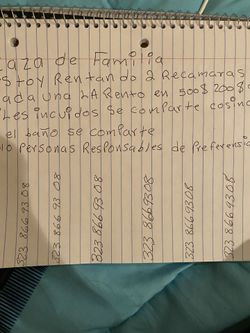 caza de Familia
Estoy Rentando 2 Recamaras
cada una LA Rento en 500$ 200$
Les incuidos Se comparte cosin
el baño se comparte
lo Personas Responsables de Preferenci
323 866 93 08
323 866 93 08
323 866 93 08
323 866 93 08
323 866 93 08
323 866 93 08